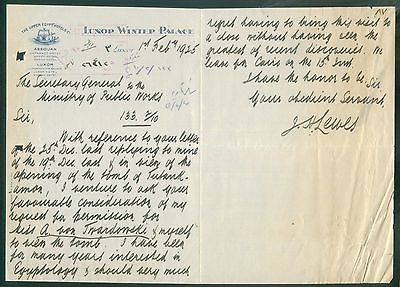 THE UPPER EGYPT HOTELS Co.
LUXOR WINTER PALACE
ASSOUAN
LUXOR
Luxor 1st Feb. 1925
The Secretary General to the
Ministry of Public Works
133. 2/10
Sir,
With reference to your letter
of the 25th Dec. last replying to mine
of the 19th Dec. last & in view of the
opening of the tomb of Tutank-
amon, I venture to ask your
favourable consideration of my
request for permission for
A. von Twardowski & myself
to view the tomb. I have been
for many years interested in
Egyptology & should very much
regret having to bring this visit to
a close without having seen the
greatest of recent discoveries. We
leave for Cairo on the 15th inst.
I have the honor to be, Sir
Your obedient Servant,